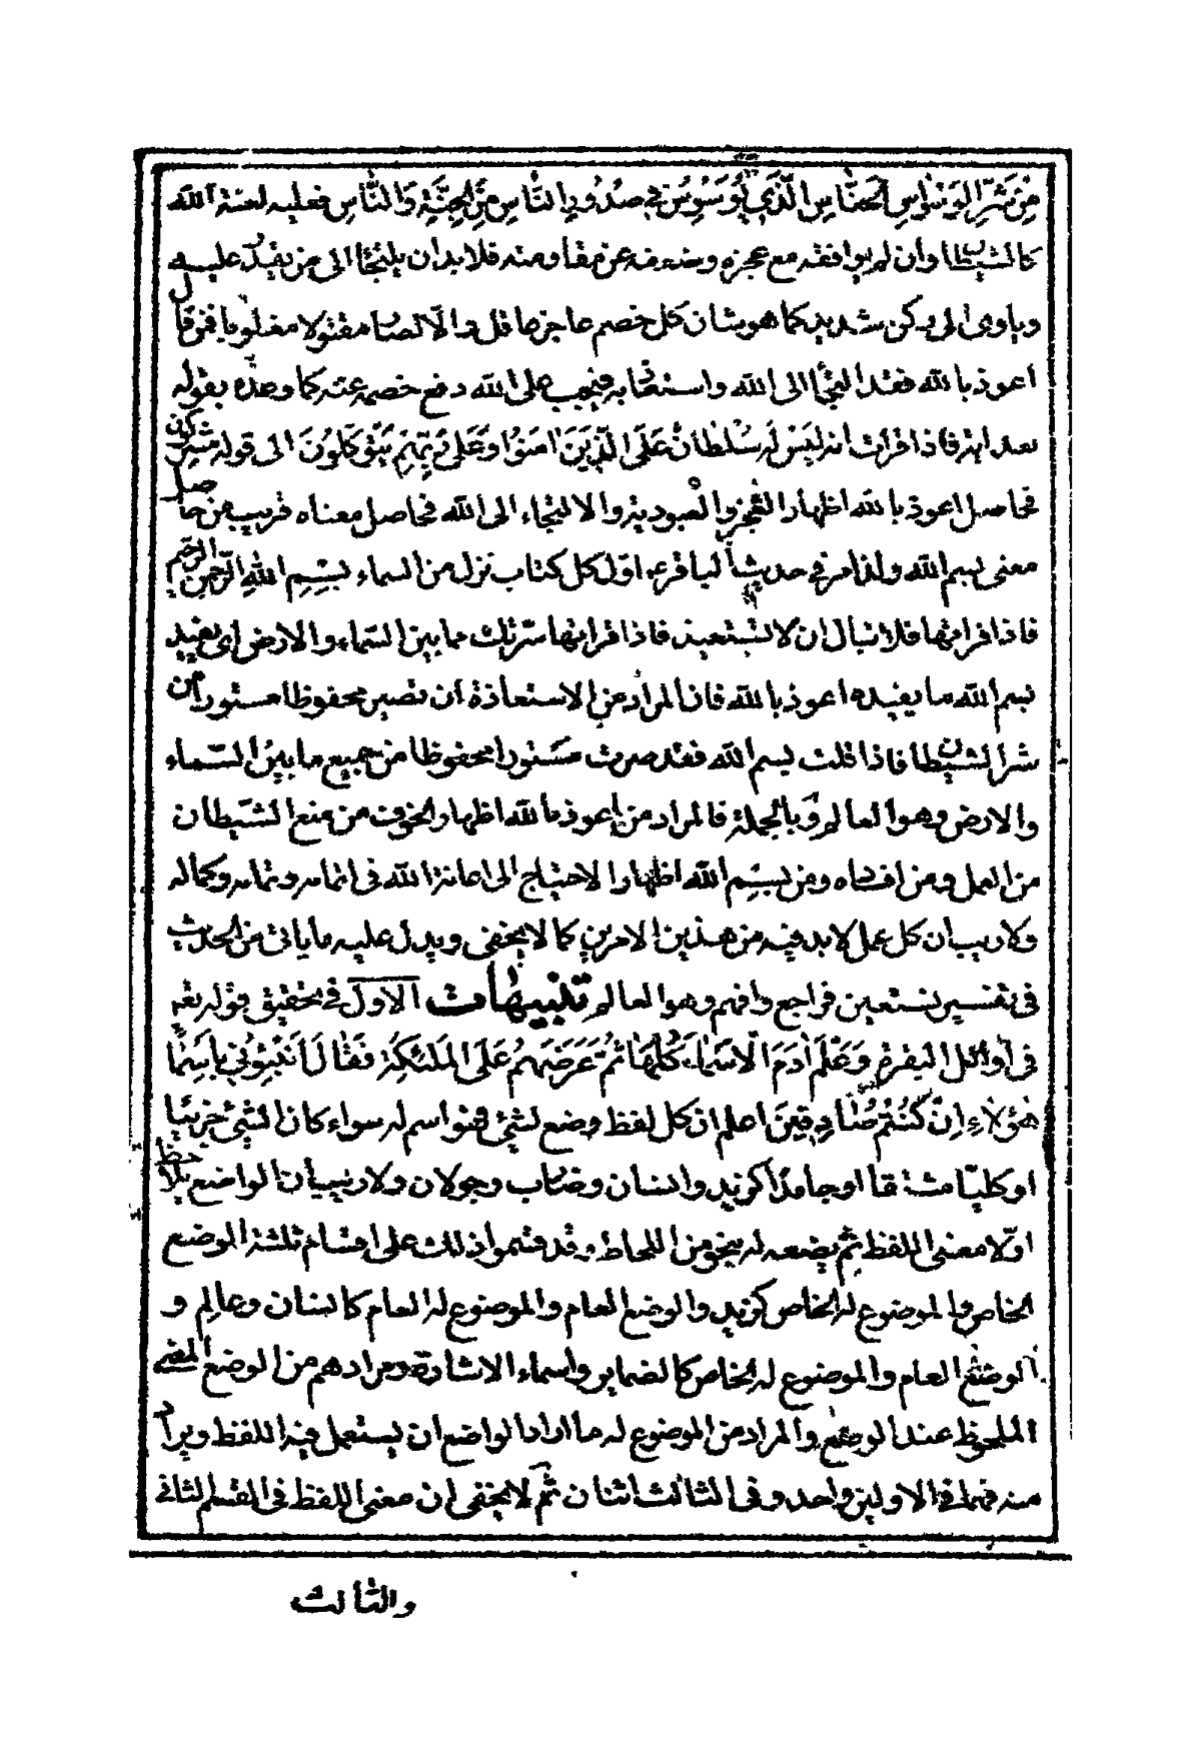 مِنْ شَرِّ الوَسْوَاسِ الْخَنَّاسِ الَّذِي يُوَسْوِسُ فِي صُدُورِ النَّاسِ مِنَ الْجِنَّةِ وَالنَّاسِ فعليه لعنة الله
كالشيطان وان لم يوافقه مع عجزه وضعفه عن مقاومته فلا بد ان يلتجأ الى من يقدر عليه
وياوى الى ركن شديد كما هو شان كل خصم عاجز ما قل والا لصار مقتولا مغلوبا فمن قال
اعوذ بالله فقد التجأ الى الله واستعاذ به فيجب على الله دفع خصمه عنه كما وعده بقوله
بعد اية فاذا قرأت انه لَيْسَ لَهُ سُلْطَانٌ عَلَى الَّذِينَ اٰمَنُوا وَعَلَى رَبِّهِمْ يَتَوَكَّلُونَ الى قوله مشركون
فحاصل اعوذ بالله اظهار العجز والعبودية والالتجاء الى الله فحاصل معناه قريب من حاصل
معنى بسم الله ولذا مر في حديث الباقر ع اول كل كتاب نزل من السماء بِسْمِ اللهِ الرَّحمنِ الرَّحيم
فاذا قراتها فلا تبال ان لا تستعيذ فاذا قراتها سترتك ما بين السماء والارض اى يفيد
بسم الله ما يفيده اعوذ بالله فاذا المراد من الاستعاذة ان تصير محفوظا مستورا من
شر الشيطان فاذا قلت بسم الله فقد صرت مستورا محفوظا من جميع ما بين السماء
والارض وهو العالم وبالجملة فالمراد من اعوذ بالله اظهار الخوف من منع الشيطان
من العمل ومن افساده ومن بسم الله اظهار الاحتياج الى اعانة الله فى اتمامه وتمامه وكماله
ولا ريب ان كل عمل لا بد فيه من هذين الامرين كما لا يخفى ويدل عليه ما ياتى من الحديث
فى تفسير نستعين فراجع وافهم وهو العالم تنبيهات الاول فى تحقيق قوله تعه
فى اوائل البقرة وَعَلَّمَ اٰدَمَ الْاَسْمَاءَ كُلَّهَا ثُمَّ عَرَضَهُمْ عَلَى المَلٰئِكَةِ فَقَالَ اَنْبِئُونِي بِاَسْمَاءِ
هٰؤُلَاءِ اِنْ كُنْتُمْ صَادِقِينَ اعلم ان كل لفظ وضع لشئ فهو اسم له سواء كان الشئ جزئيا
او كليا مشتقا او جامدا كزيد وانسان وضراب وجولان ولا ريب ان الواضع يلاحظ
اولا معنى اللفظ ثم يضعه له بنحو من اللحاظ وقد قسموا ذلك على اقسام ثلثة الوضع
الخاص والموضوع له الخاص كزيد والوضع العام والموضوع له العام كانسان وعالم و
الوضع العام والموضوع له الخاص كالضماير واسماء الاشارة ومرادهم من الوضع المعنى
الملحوظ عند الوضع والمراد من الموضوع له ما اراد الواضع ان يستعمل فيه اللفظ ويراد
منه فهما فى الاولين واحد وفى الثالث اثنان ثم لا يخفى ان معنى اللفظ فى القسم الثانى
والثالث